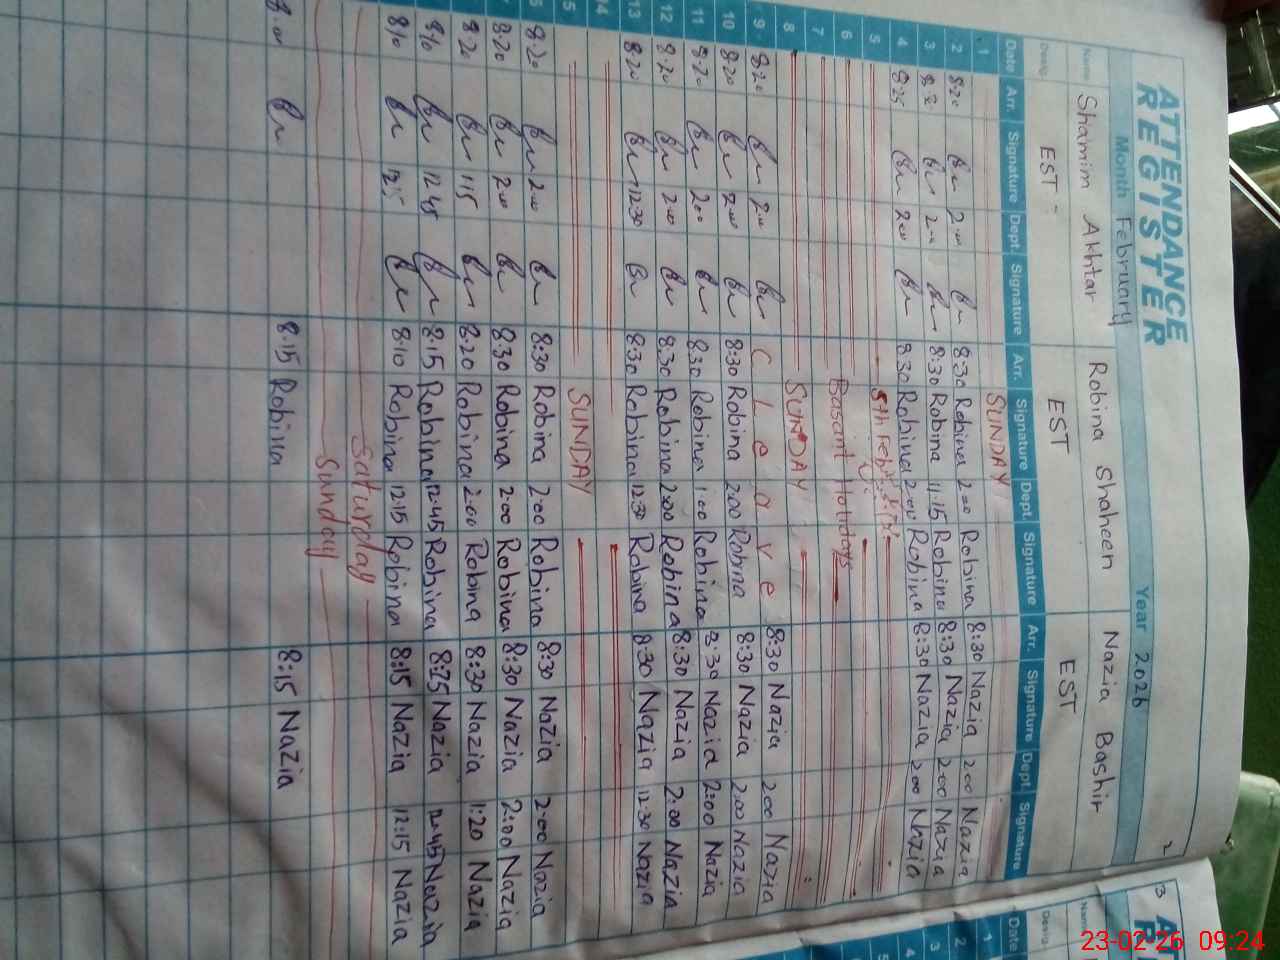 ATTENDANCE
REGISTER
Month February Year 2026
Name Shamim Akhtar Robina Shaheen Nazia Bashir
Desig. EST - EST EST
Date Arr. Signature Dept. Signature Arr. Signature Dept. Signature Arr. Signature Dept. Signature
1 SUNDAY
2 8:20 2:00 8:30 Robina 2:00 Robina 8:30 Nazia 2:00 Nazia
3 8:30 Robina 11:15 Robina 8:30 Nazia 2:00 Nazia
4 8:25 2:00 8:30 Robina 2:00 Robina 8:30 Nazia 2:00 Nazia
5 5th Feb
6 Basant Holidays
7
8 SUNDAY
9 8:20 2:00 C Leave 8:30 Nazia 2:00 Nazia
10 8:20 2:00 8:30 Robina 2:00 Robina 8:30 Nazia 2:00 Nazia
11 8:20 2:00 8:30 Robina 1:00 Robina 8:30 Nazia 2:00 Nazia
12 8:20 2:00 8:30 Robina 2:00 Robina 8:30 Nazia 2:00 Nazia
13 8:20 12:30 8:30 Robina 12:30 Robina 8:30 Nazia 12:30 Nazia
14
5 SUNDAY
6 8:20 2:00 8:30 Robina 2:00 Robina 8:30 Nazia 2:00 Nazia
8:20 2:00 8:30 Robina 2:00 Robina 8:30 Nazia 2:00 Nazia
8:20 1:15 8:20 Robina 2:00 Robina 8:30 Nazia 1:20 Nazia
8:10 12:45 8:15 Robina 12:45 Robina 8:25 Nazia 12:45 Nazia
8:10 8:10 Robina 12:15 Robina 8:15 Nazia 12:15 Nazia
Saturday
Sunday
8:00 8:15 Robina 8:15 Nazia
2
3
Name
Desig.
Date
1
2
3
4
23-02-26 09:24